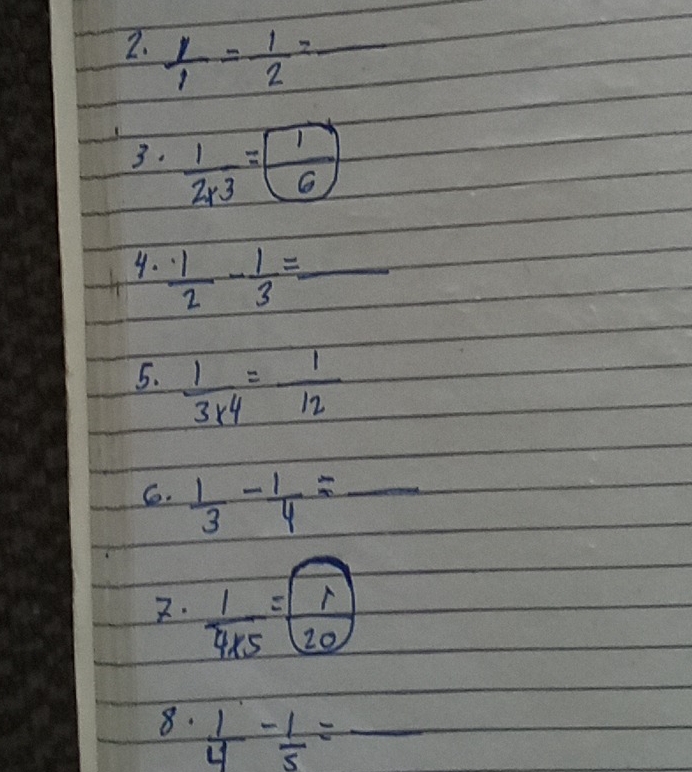 2. 1/1 = 1/2 = ___
3. 1/2x3 = 1/6
4. 1/2 - 1/3 = ___
5. 1/3x4 = 1/12
6. 1/3 - 1/4 = ___
7. 1/4x5 = 1/20
8. 1/4 - 1/5 = ___